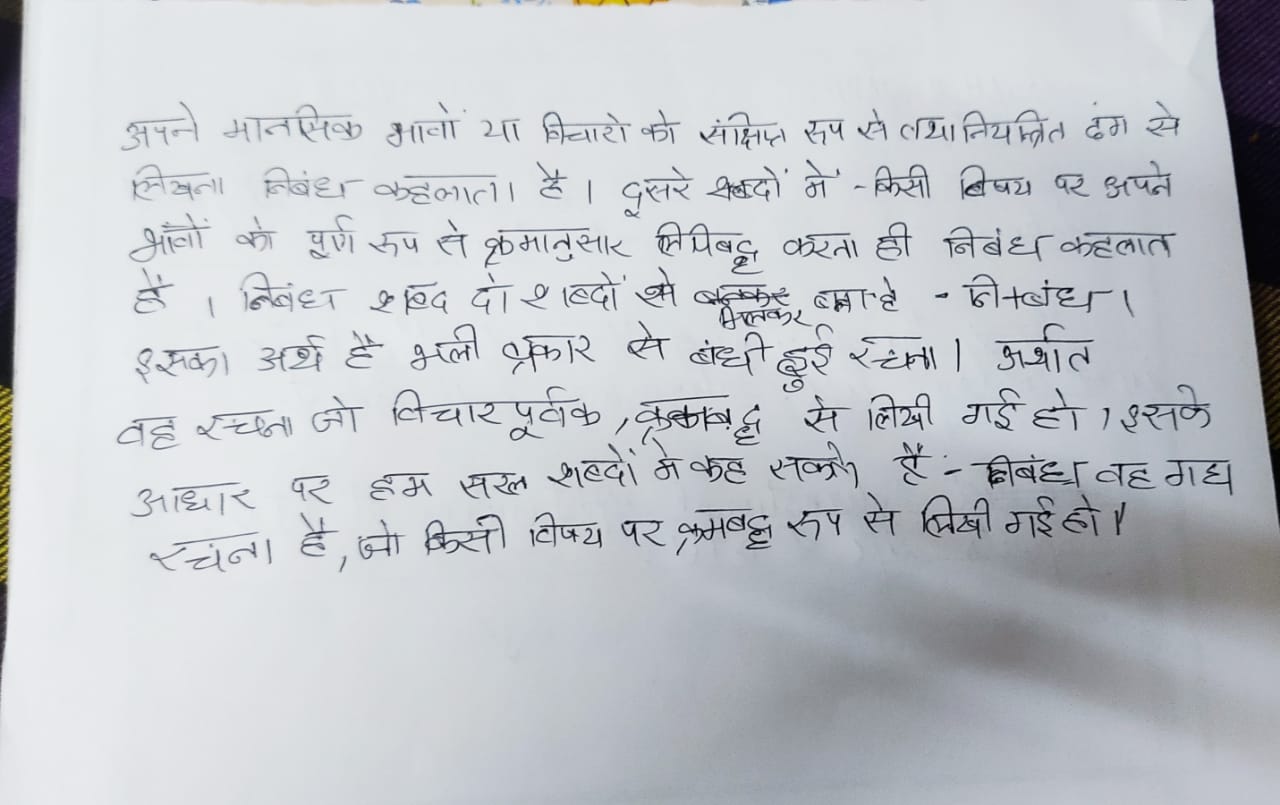 अपने मानसिक भावों या विचारो को संक्षिप्त रूप से तथा नियन्त्रित ढंग से
लिखना निबंध कहलाता है। दूसरे शब्दों में - किसी विषय पर अपने
भाँवों को पूर्ण रूप से क्रमानुसार लिपिबद्ध करना ही निबंध कहलात
है। निबंध शब्दि दो शब्दों से बनकर बना है - नि+बंध।
मिलकर
इसका अर्थ है भली प्रकार से बंधी हुई रचना। अर्थात
वह रचना जो विचार पूर्वक, से लिखी गई हो, इसके
आधार पर हम सरल शब्दों में कह सकते हैं :- निबंध वह गद्य
रचंना है, जो किसी विषय पर क्रमबद्ध रूप से लिखी गई हो।